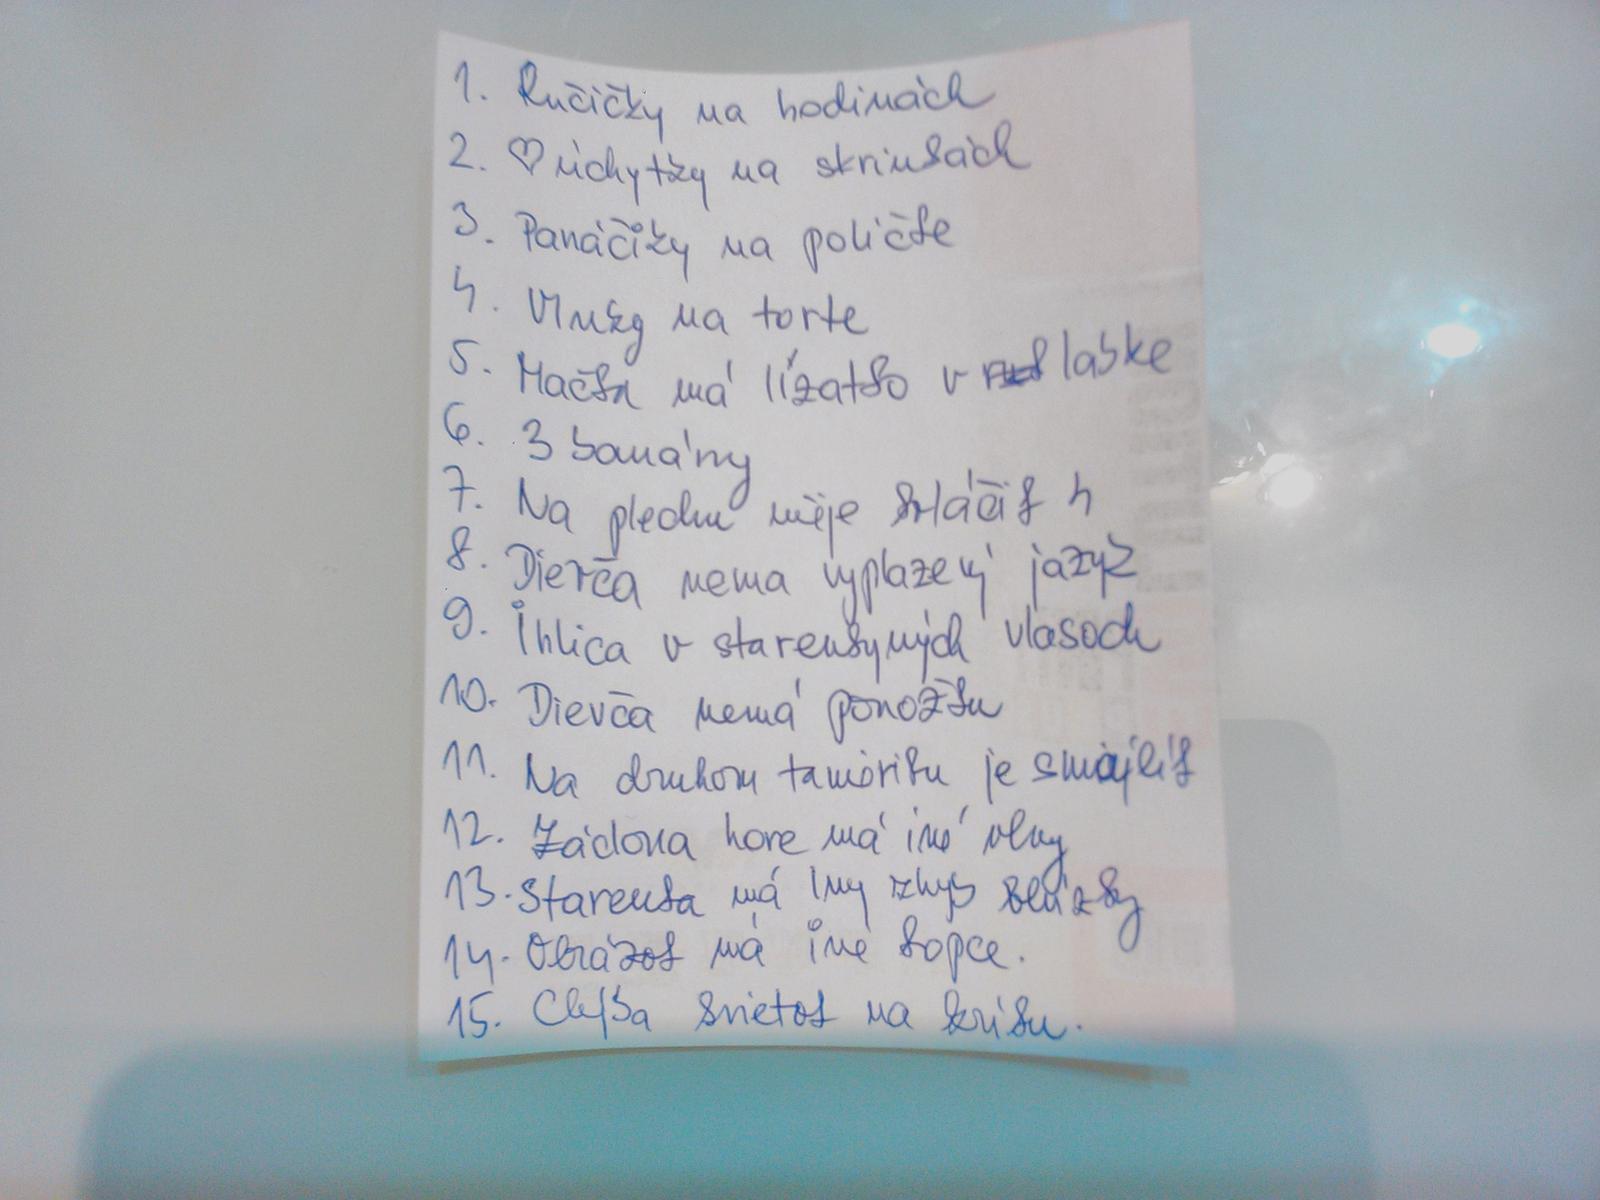 1. Ručičky na hodinách
2. ♡ úchytky na skrinkách
3. Panáčiky na poličke
4. Vlnky na torte
5. Mačka má lízatko v labke
6. 3 banány
7. Na pledu nieje štvorček 4
8. Dievča nema vyplazený jazyk
9. Ihlica v starenkyných vlasoch
10. Dievča nemá ponožku
11. Na druhom tanieriku je smajlík
12. Žádova hore má iné vlny
13. Starenka má iny zhyb blúzky
14. Obrázok má iné kopce.
15. Chýba kvietok na kríku.